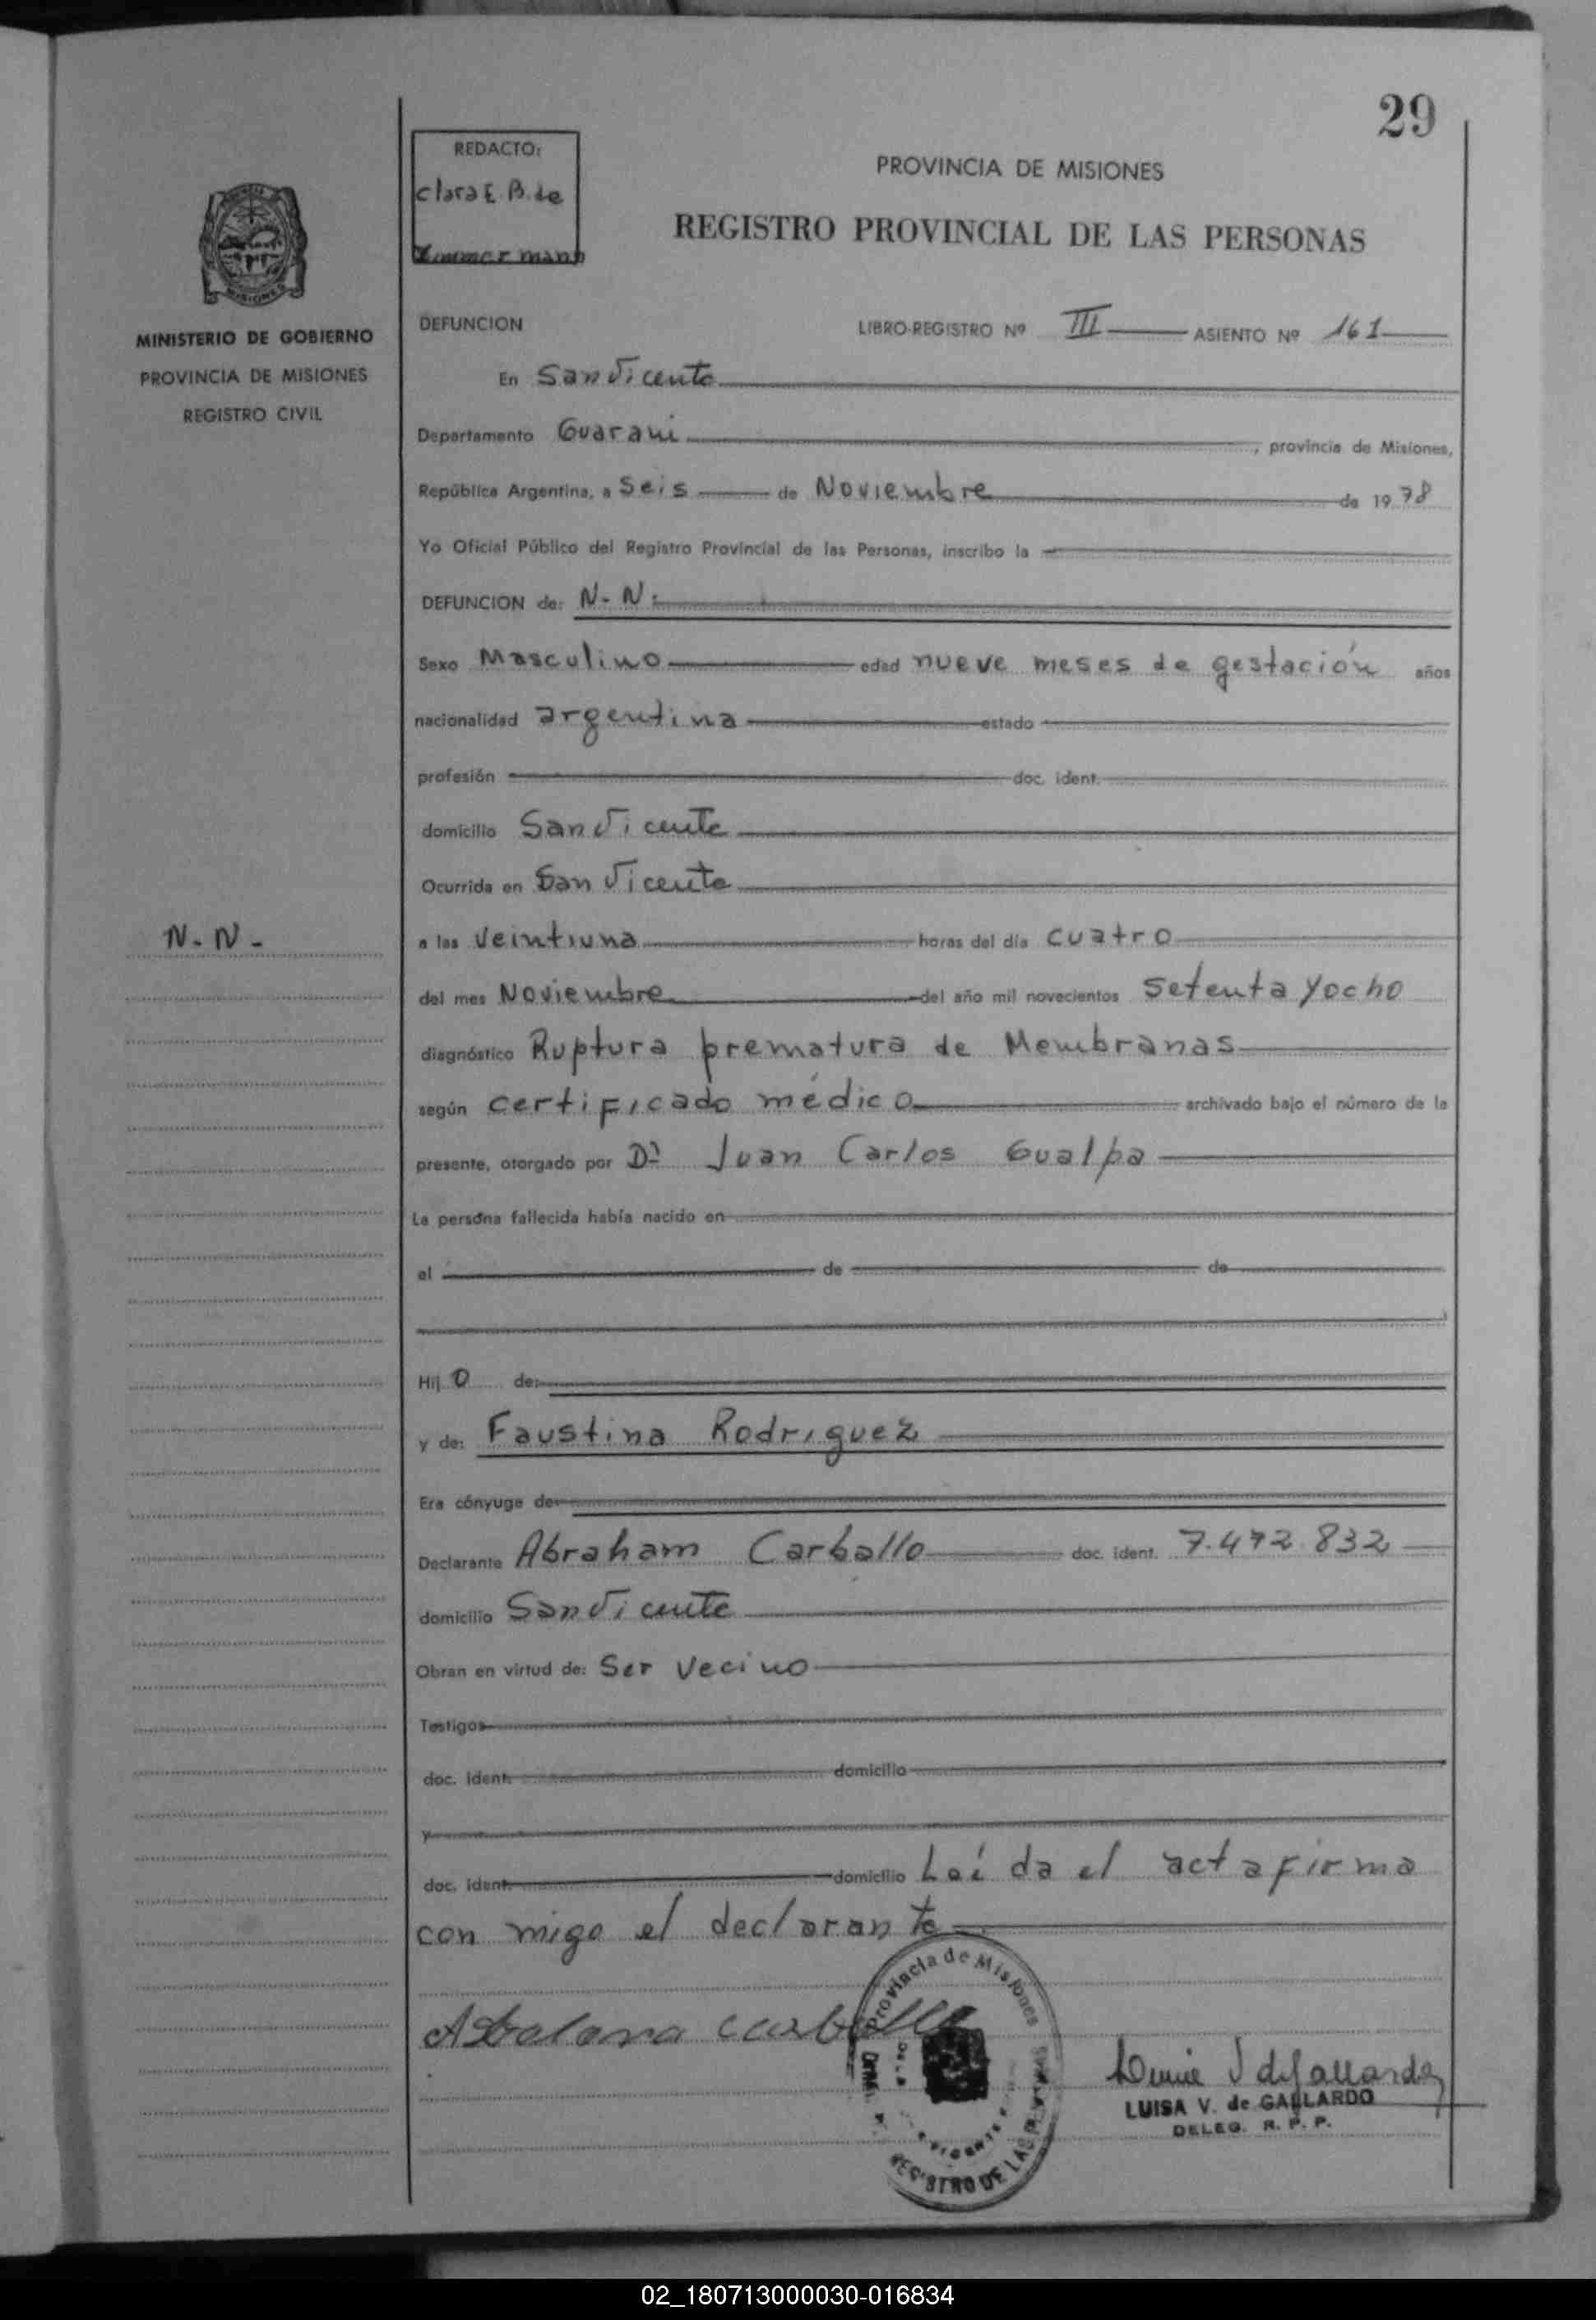 29
REDACTO:
Clara E. B. de
Zimmermann
PROVINCIA DE MISIONES
REGISTRO PROVINCIAL DE LAS PERSONAS
MISIONES
MINISTERIO DE GOBIERNO
PROVINCIA DE MISIONES
REGISTRO CIVIL
DEFUNCION LIBRO-REGISTRO Nº III ASIENTO Nº 161
En San Vicente
Departamento Guarani, provincia de Misiones,
República Argentina, a Seis de Noviembre de 1978
Yo Oficial Público del Registro Provincial de las Personas, inscribo la
DEFUNCION de: N-N.
Sexo Masculino edad nueve meses de gestación años
nacionalidad argentina estado
profesión doc. ident.
domicilio San Vicente
Ocurrida en San Vicente
N-N-
a las Veintiuna horas del día cuatro
del mes Noviembre del año mil novecientos Setenta y ocho
diagnóstico Ruptura prematura de Membranas
según certificado médico archivado bajo el número de la
presente, otorgado por Dr Juan Carlos Gualpa
La persona fallecida había nacido en
el de de
Hij o de:
y de: Faustina Rodriguez
Era cónyuge de
Declarante Abraham Carballo doc. ident. 7.472.832
domicilio San Vicente
Obran en virtud de: Ser Vecino
Testigos
doc. ident. domicilio
y
doc. ident. domicilio Leí da el acta firma
con migo el declarante
Provincia de Misiones
REGISTRO DE LAS P
LUISA V. de GALLARDO
DELEG. R. P. P.
02_180713000030-016834